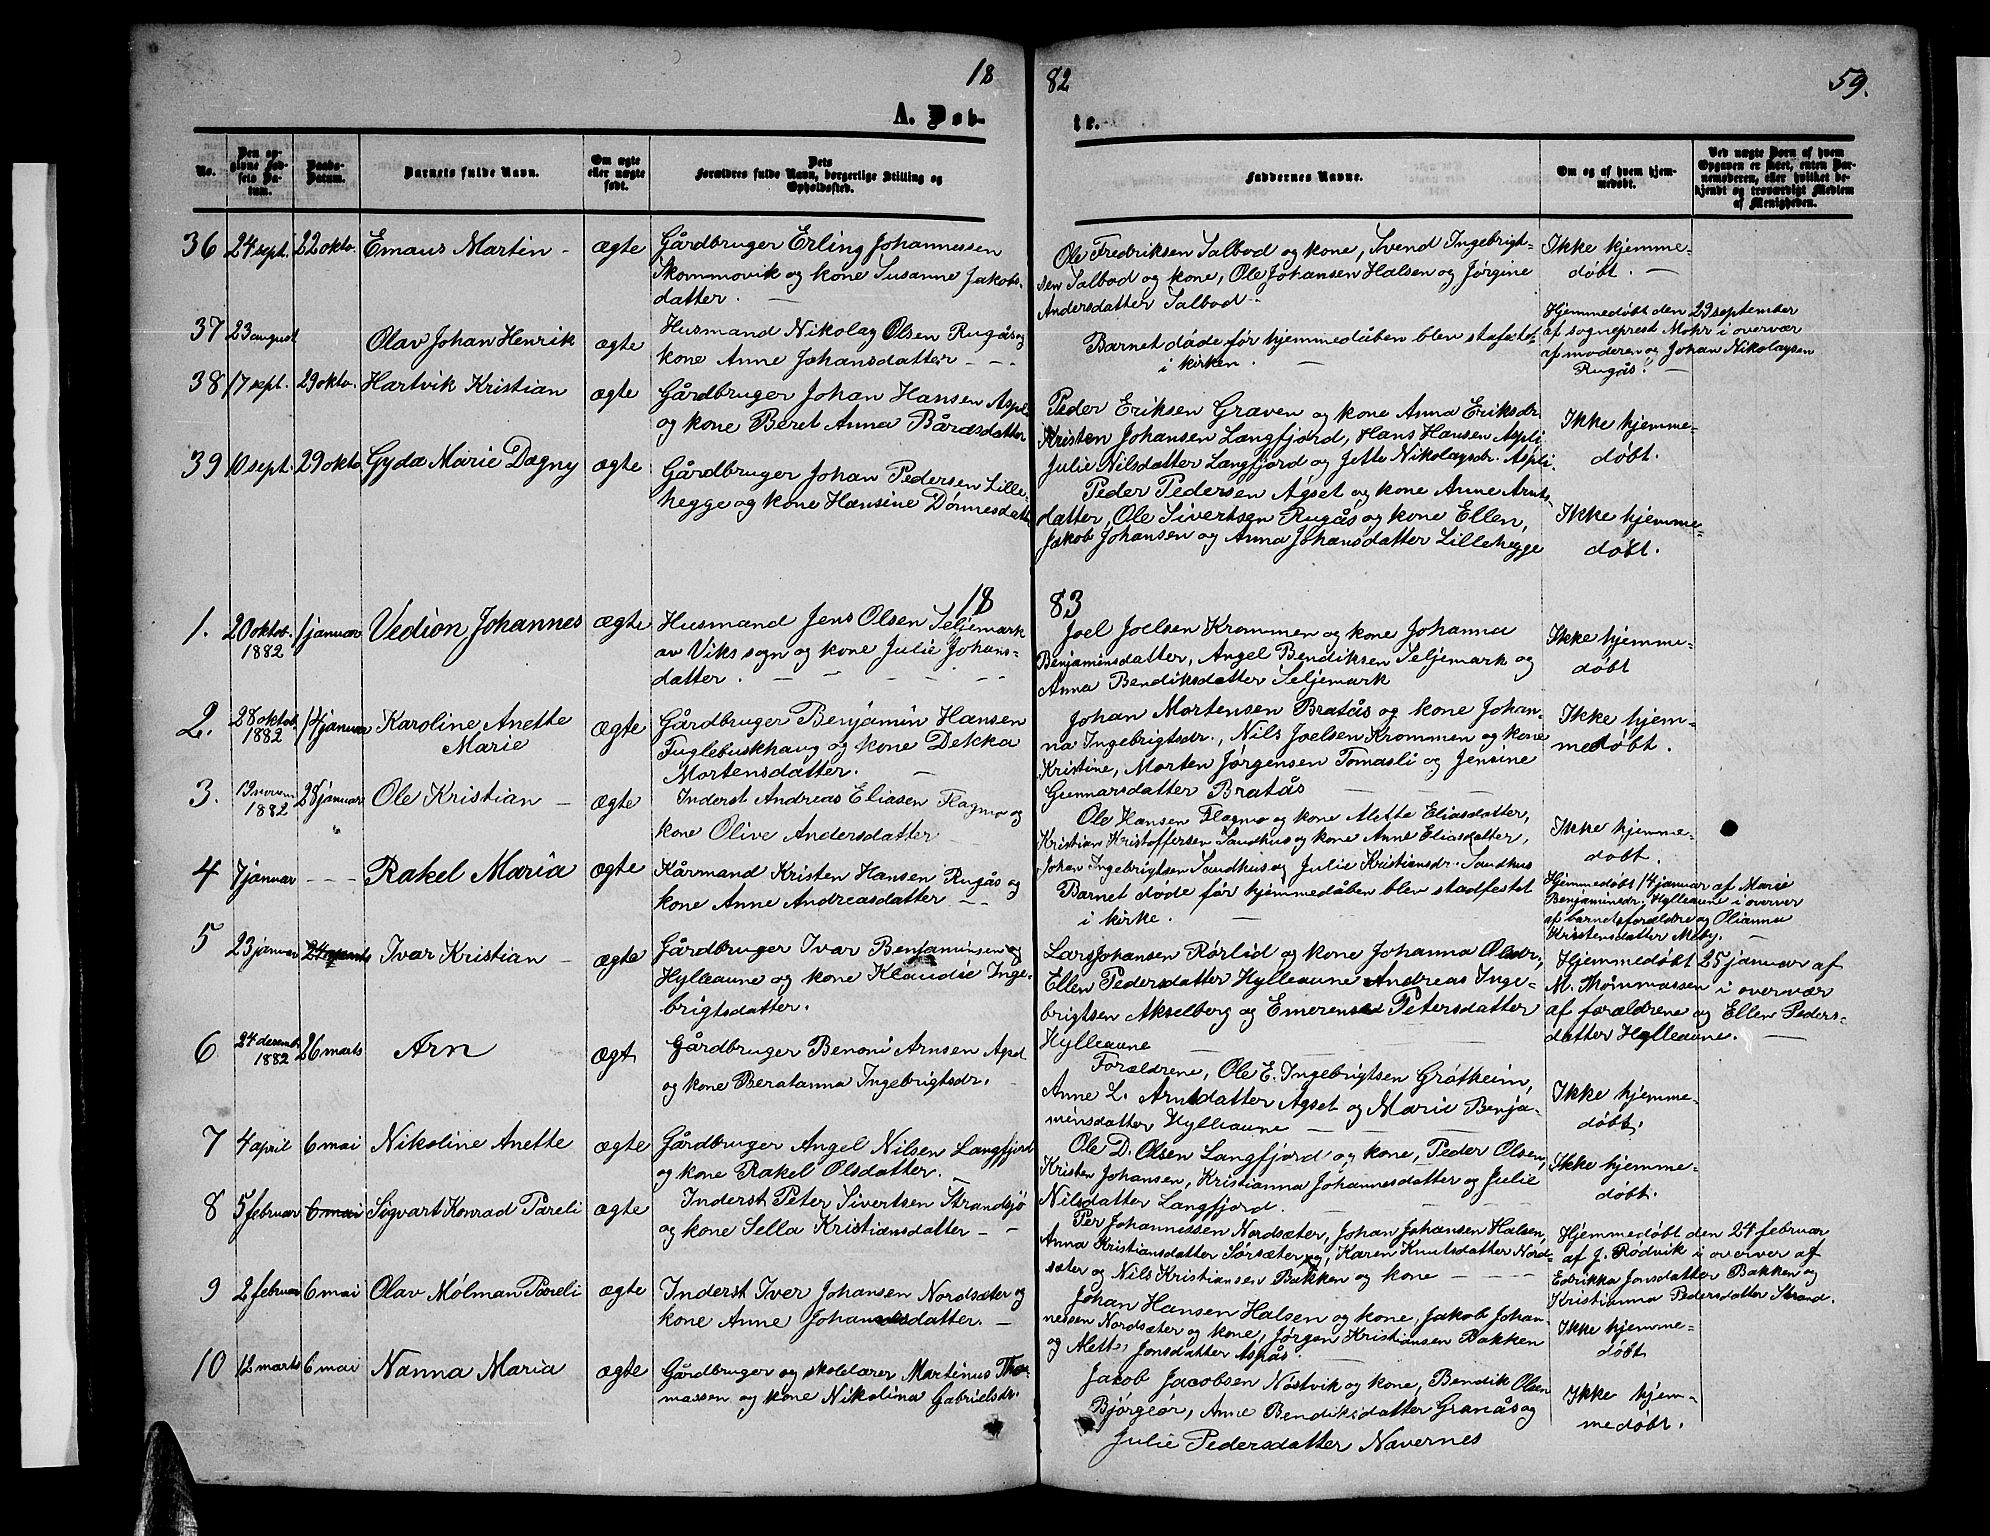 18
82
59.
A. Døb-
te.
No.
Den op-
givne Fød-
sels Da-
tum.
Daabs-
Datum.
Barnets fulde Navn.
Om ægte
eller uægte
født.
Dets
Forældres fulde Navn, borgerlige Stilling og
Opholdssted.
Faddernes Navne.
Om og af hvem hjem-
medøbt.
Ved uægte Børn af hvem
Opgaven er skeet, enten Bar-
nemoderen, eller hvilket be-
kjendt og troværdigt Medlem
af Menigheden.
36 24 sept. 22 okto. Emaus Martin - ægte
Gårdbruger Erling Johannessen
Skommovik og kone Susanne Jakobs-
datter. -
Ole Fredriksen Salbod og kone, Svend Ingebrigt-
sen Salbod og kone, Ole Johansen Halsen og Jørgine
Andersdatter Salbod -
Ikke hjemme-
døbt. -
37 23 august Olav Johan Henrik ægte
Husmand Nikolay Olsen Rugås og
kone Anne Johansdatter - -
Barnet døde før hjemmedåben blev stafæstet
i kirken. -
Hjemmedøbt den 29 september
af sogneprest Mohr i overvær
af moderen og Johan Nikolaysen
Rugås. -
38 17 sept. 29 okto. Hartvik Kristian ægte
Gårdbruger Johan Hansen Aspli
og kone Beret Anna Bårdsdatter
Peder Eriksen Graven og kone Anna Eriksdr.
Kristen Johansen Langfjord, Hans Hansen Aspli
Julie Nilsdatter Langfjord og Jette Nikolaysdr. Aspli.
Ikke hjemme-
døbt.
39 10 sept. 29 okto. Gyda Marie Dagny ægte
Gårdbruger Johan Pedersen Lille-
hegge og kone Hansine Dønnesdatt
Peder Pedersen Agset og kone Anne Arnts-
datter, Ole Sivertsen Rugås og kone Ellen,
Jakob Johansen og Anna Johansdatter Lillehegge
Ikke hjemme-
døbt.
18
83
1. 20 oktob. 1882 1 januar Vedion Johannes ægte
Husmand Jens Olsen Seljemark
av Viks sogn og kone Julie Johans-
datter. - - - -
Joel Joelsen Krommen og kone Johanna
Benjaminsdatter, Angel Bendiksen Seljemark og
Anna Bendiksdatter Seljemark
Ikke hjemme-
døbt
2. 28 oktob. 1882 14 januar Karoline Anette
Marie
ægte
Gårdbruger Benjamin Hansen
Fuglebuskhaug og kone Dekka
Mortensdatter. -
Johan Mortensen Bratås og kone Johan-
na Ingebrigtsdr., Nils Joelsen Krommen og kone
Kristine, Morten Jørgensen Tomasli og Jensine
Gunnarsdatter Bratås
Ikke hjem-
medøbt.
3. 19 novem 1882 28 januar Ole Kristian - ægte
Inderst Andreas Eliasen Flagmo og
kone Olive Andersdatter
Ole Hansen Flagmo og kone Mette Eliasdatter,
Kristian Kristoffersen Sandhus og kone Anne Eliasdatter,
Johan Ingebrigtsen Sandhus og Julie Kristiansdr. Sandhus
Ikke hjemme-
døbt.
4 7 januar - - - Rakel Maria ægte
Kårmand Kristen Hansen Rugås og
kone Anne Andreasdatter - -
Barnet døde før hjemmedåben blev stadfestet
i kirke. -
Hjemmedøbt 14 januar af Marie
Benjaminsdr. Hylleaune i overver
af barnets forældre og Olianna
Kristensdatter Meby. -
5 23 januar 24 marts Ivar Kristian - ægte
Gårdbruger Ivar Benjaminsen
Hylleaune og kone Klaudie Inge-
brigtsdatter.
Lars Johansen Rørlid og kone Johanna Olsdr.,
Ellen Pedersdatter Hylleaune Andreas Inge-
brigtsen Akselberg og Emerensa Petersdatter
Hylleaune
Hjemmedøbt 25 januar af
M. Thømmassen i overvær
af forældrene og Ellen Peders-
datter Hylleaune. -
6 24 desemb. 1882 26 marts Arn ægt
Gårdbruger Benoni Arnsen Agset
og kone Beratanna Ingebrigtsdr.
Forældrene, Ole E. Ingebrigtsen Grøtheim,
Anne L. Arntsdatter Agset og Marie Benja-
minsdatter Hylleaune
Ikke hjemme-
døbt.
7 4 april 6 mai Nikoline Anette ægte
Gårdbruger Angel Nilsen Langfjord
og kone Rakel Olsdatter.
Ole D. Olsen Langfjord og kone, Peder Olsen,
Kristen Johansen, Kristianna Johannesdatter og Julie
Nilsdatter Langfjord.
Ikke hjemme-
døbt.
8 5 februar 6 mai Sigvart Konrad Pareli ægte
Inderst Peter Sivertsen Strandsjø
og kone Sella Kristiansdatter - -
Per Johannessen Nordsæter, Johan Johansen Halsen,
Anna Kristiansdatter Sørsæter, Karen Knutsdatter Nord-
sæter og Nils Kristiansen Bakken og kone - - -
Hjemmedøbt den 24 februar
af J. Rødvik i overver af
Edrikka Jonsdatter Bakken og
Kristianna Pedersdatter Strand.
9 2 februar 6 mai Olav Mólman Pareli ægte
Inderst Iver Johansen Nordsæter og
kone Anne Johannesdatter. -
Johan Hansen Halsen og kone, Jakob Johan-
nessen Nordsæter og kone, Jørgen Kristiansen Bakken
og Alette Jonsdatter Aspås.
Ikke hjemme-
døbt
10 12 marts 6 mai Nanna Maria ægte
Gårdbruger og skolelærer Martinus Tho-
massen og kone Nikolina Gabrielsdr.
Jacob Jacobsen Nøstvik og kone, Bendik Olsen
Bjørgeør, Anne Bendiksdatter Granås og
Julie Pedersdatter Navernes
Ikke hjem-
medøbt.